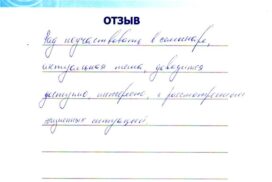 ОТЗЫВ
Рад поучаствовать в семинаре,
актуальная тема, доводится
доступно, интересно, с рассмотрением
жизненных ситуаций.